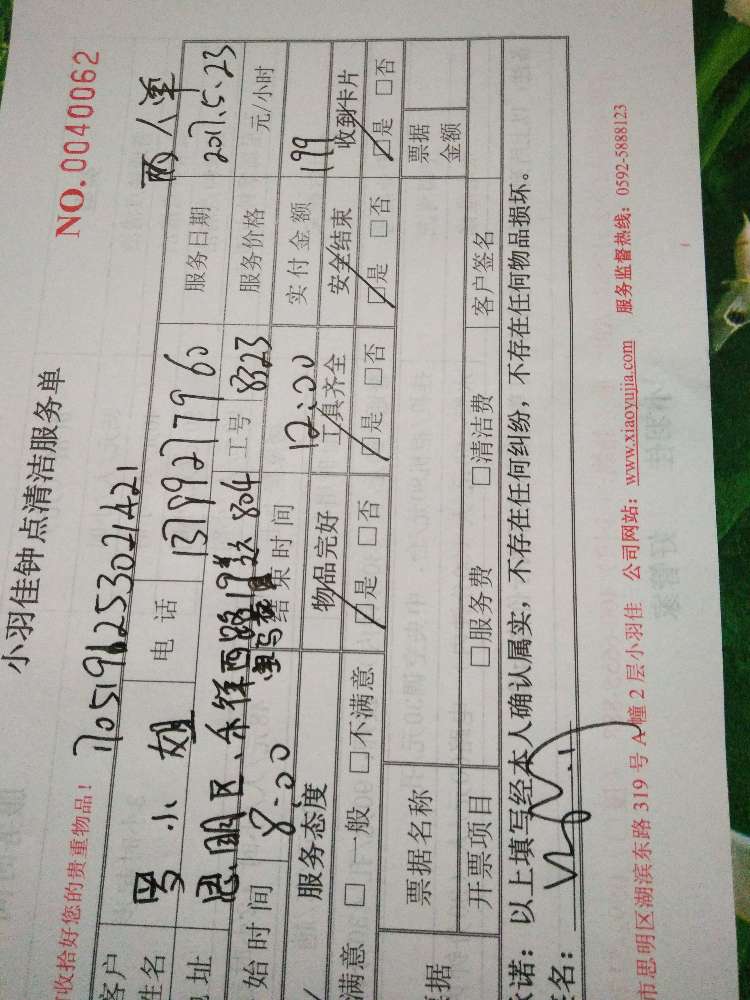 小羽佳钟点清洁服务单
NO.0040062
收拾好您的贵重物品！
1705196253021421
两人单
客户
姓名
小姐
电话
13789277960
服务日期
2017.5.23
地址
思明区、禾祥西路19号 804
工号
8323
服务价格
元/小时
始时间
8:00
结束时间
12:00
实付金额
199
服务态度
物品完好
工具齐全
安全结束
收到卡片
满意 □ 一般 □不满意
□是 □否
□是 □否
□是 □否
□是 □否
票据
票据名称
票据
金额
开票项目
□服务费
□清洁费
客户签名
承诺：以上填写经本人确认属实，不存在任何纠纷，不存在任何物品损坏。
签名：
市思明区湖滨东路 319 号 A 幢 2 层小羽佳 公司网站：www.xiaoyujia.com 服务监督热线：0592-5888123